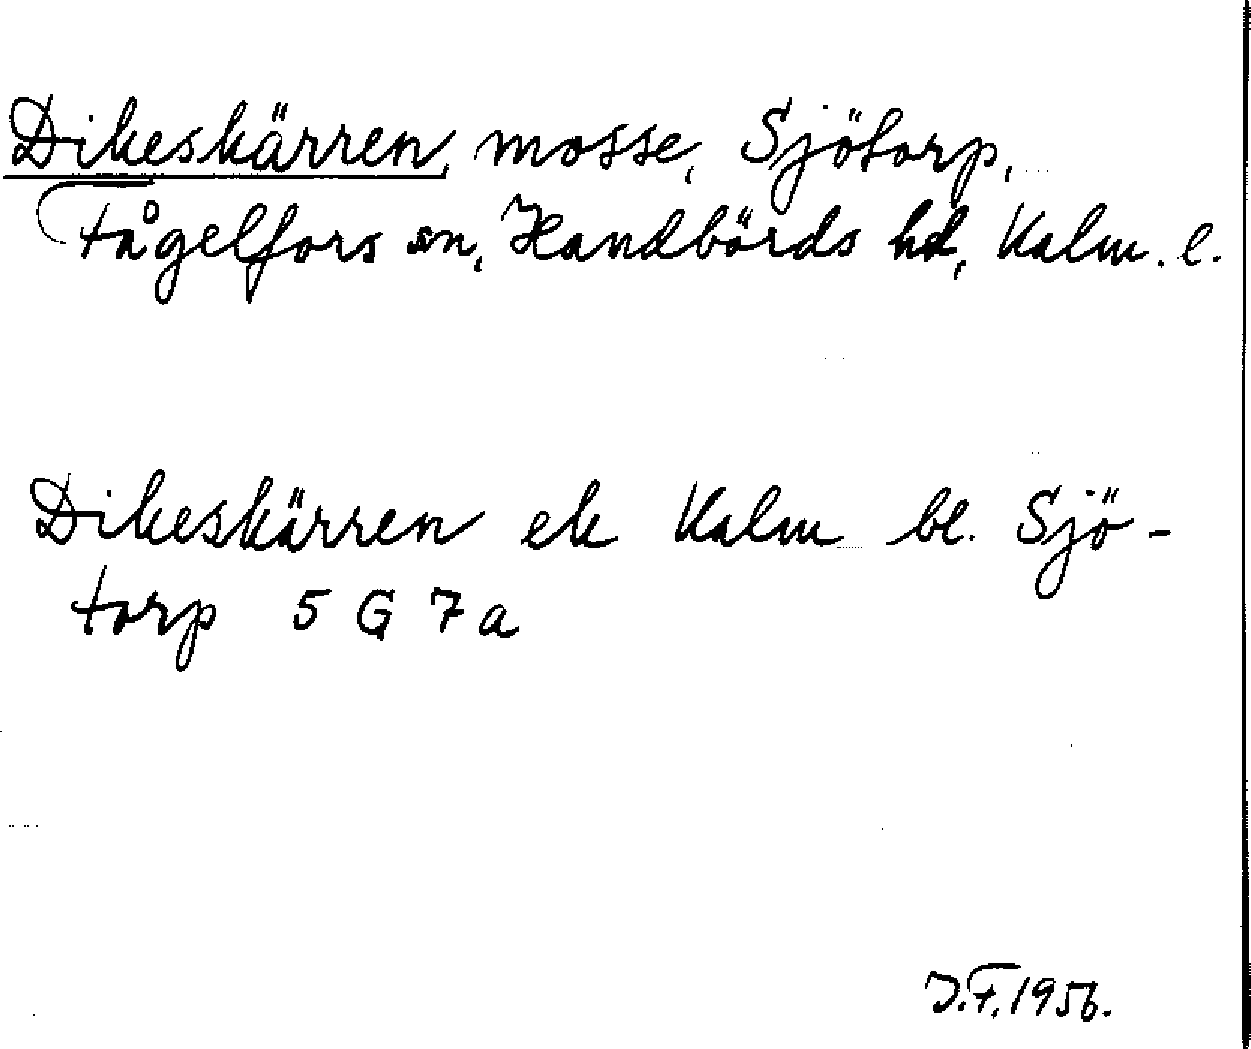 Dikeskärren, mosse, Sjötorp,
Fågelfors sn, Handbörds hd, Kalm. l.
Dikeskärren ek Kalm bl. Sjö-
torp 5 G 7 a
J.F. 1956.